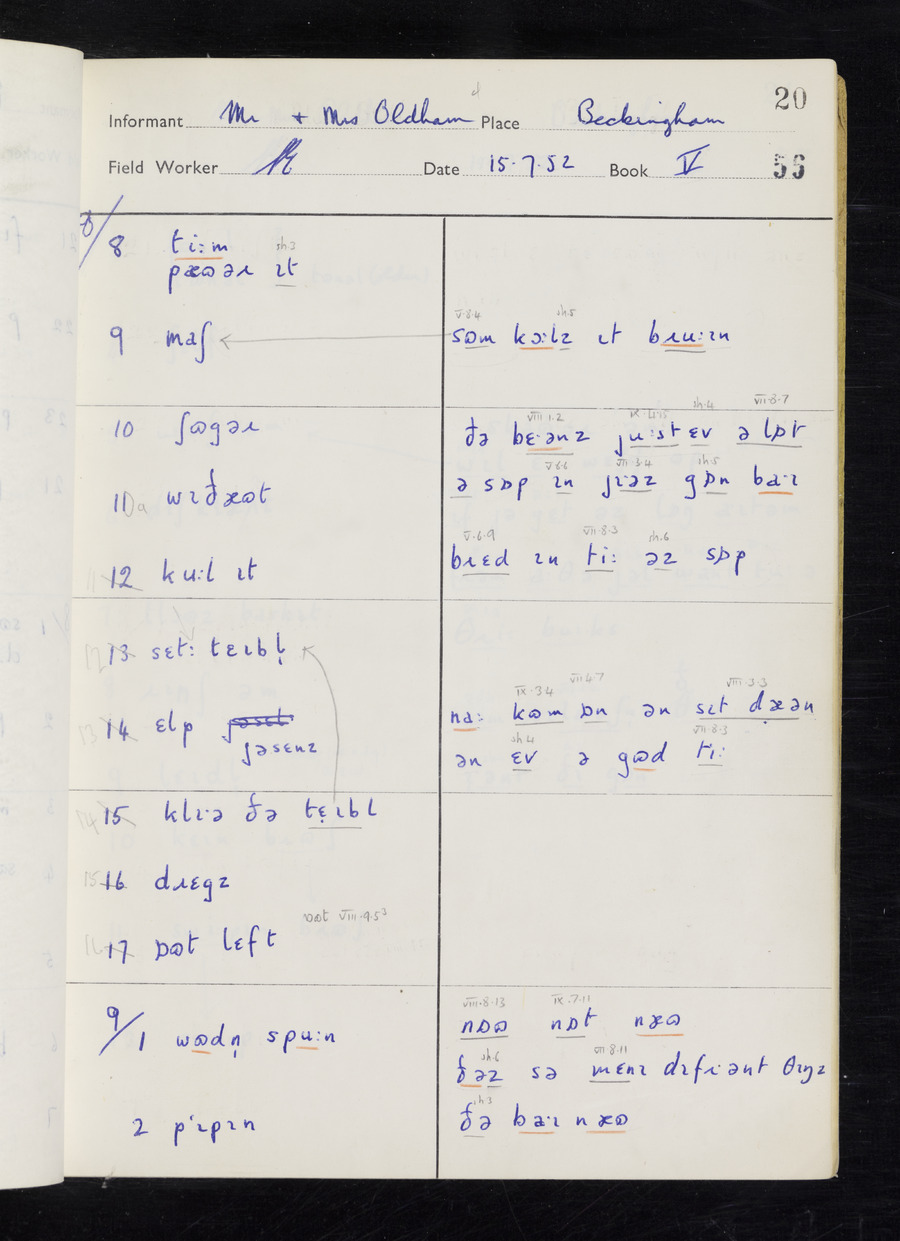 20
Informant Mr + Mrs Oldham Place Beckingham
Field Worker Date 15.7.52 Book V 56
8/ 8 tiːm
pæɷəɹ ɪt sh3
V.8.4 sh.5
9 maʃ ← sɷm kɔːlz ɪt bɹuːɪn
10 ʃɷgəɹ
VIII 1.2 IX.4.15 sh.4 VII.8.7
ðə bɛˑənz juːst ɛv ə lɒt
10a wɪðæɷt
V.6.6 VII.3.4 sh.5
ə sɒp ɪn jɪˑəz gɒn baˑɪ
V.6.9 VII.8.3 sh.6
12 kuːl ɪt bɹɛd ɪn tiː əz sɒp
13 sɛtː tɛɪbl̩
IX.3.4 VII.4.7 VIII.3.3
14 ɛlp jəsɛnz naː kɷm ɒn ən sɪt dæən
sh 4 VII.8.3
ən ɛv ə gɷd tiː
15 klɪˑə ðə tɛɪbl
16 dɹɛgz
ɒɷt VIII.9.5³
17 ɒɷt lɛft
VIII.8.13 IX.7.11
nɒɷ nɒt næɷ
9/ 1 wɷdn̩ spuːn
sh.6 VII 8.11
ðəz sə mɛnɪ dɪfɹənt θɪŋz
sh3
2 pˈɪpɪn ðə baˑɪ næɷ